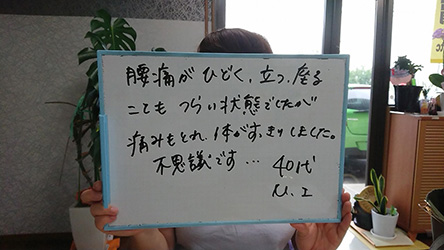 腰痛がひどく、立つ、座る
こともつらい状態でしたが
痛みもとれ、体がすっきりしました。
不思議です…
40代
M.I